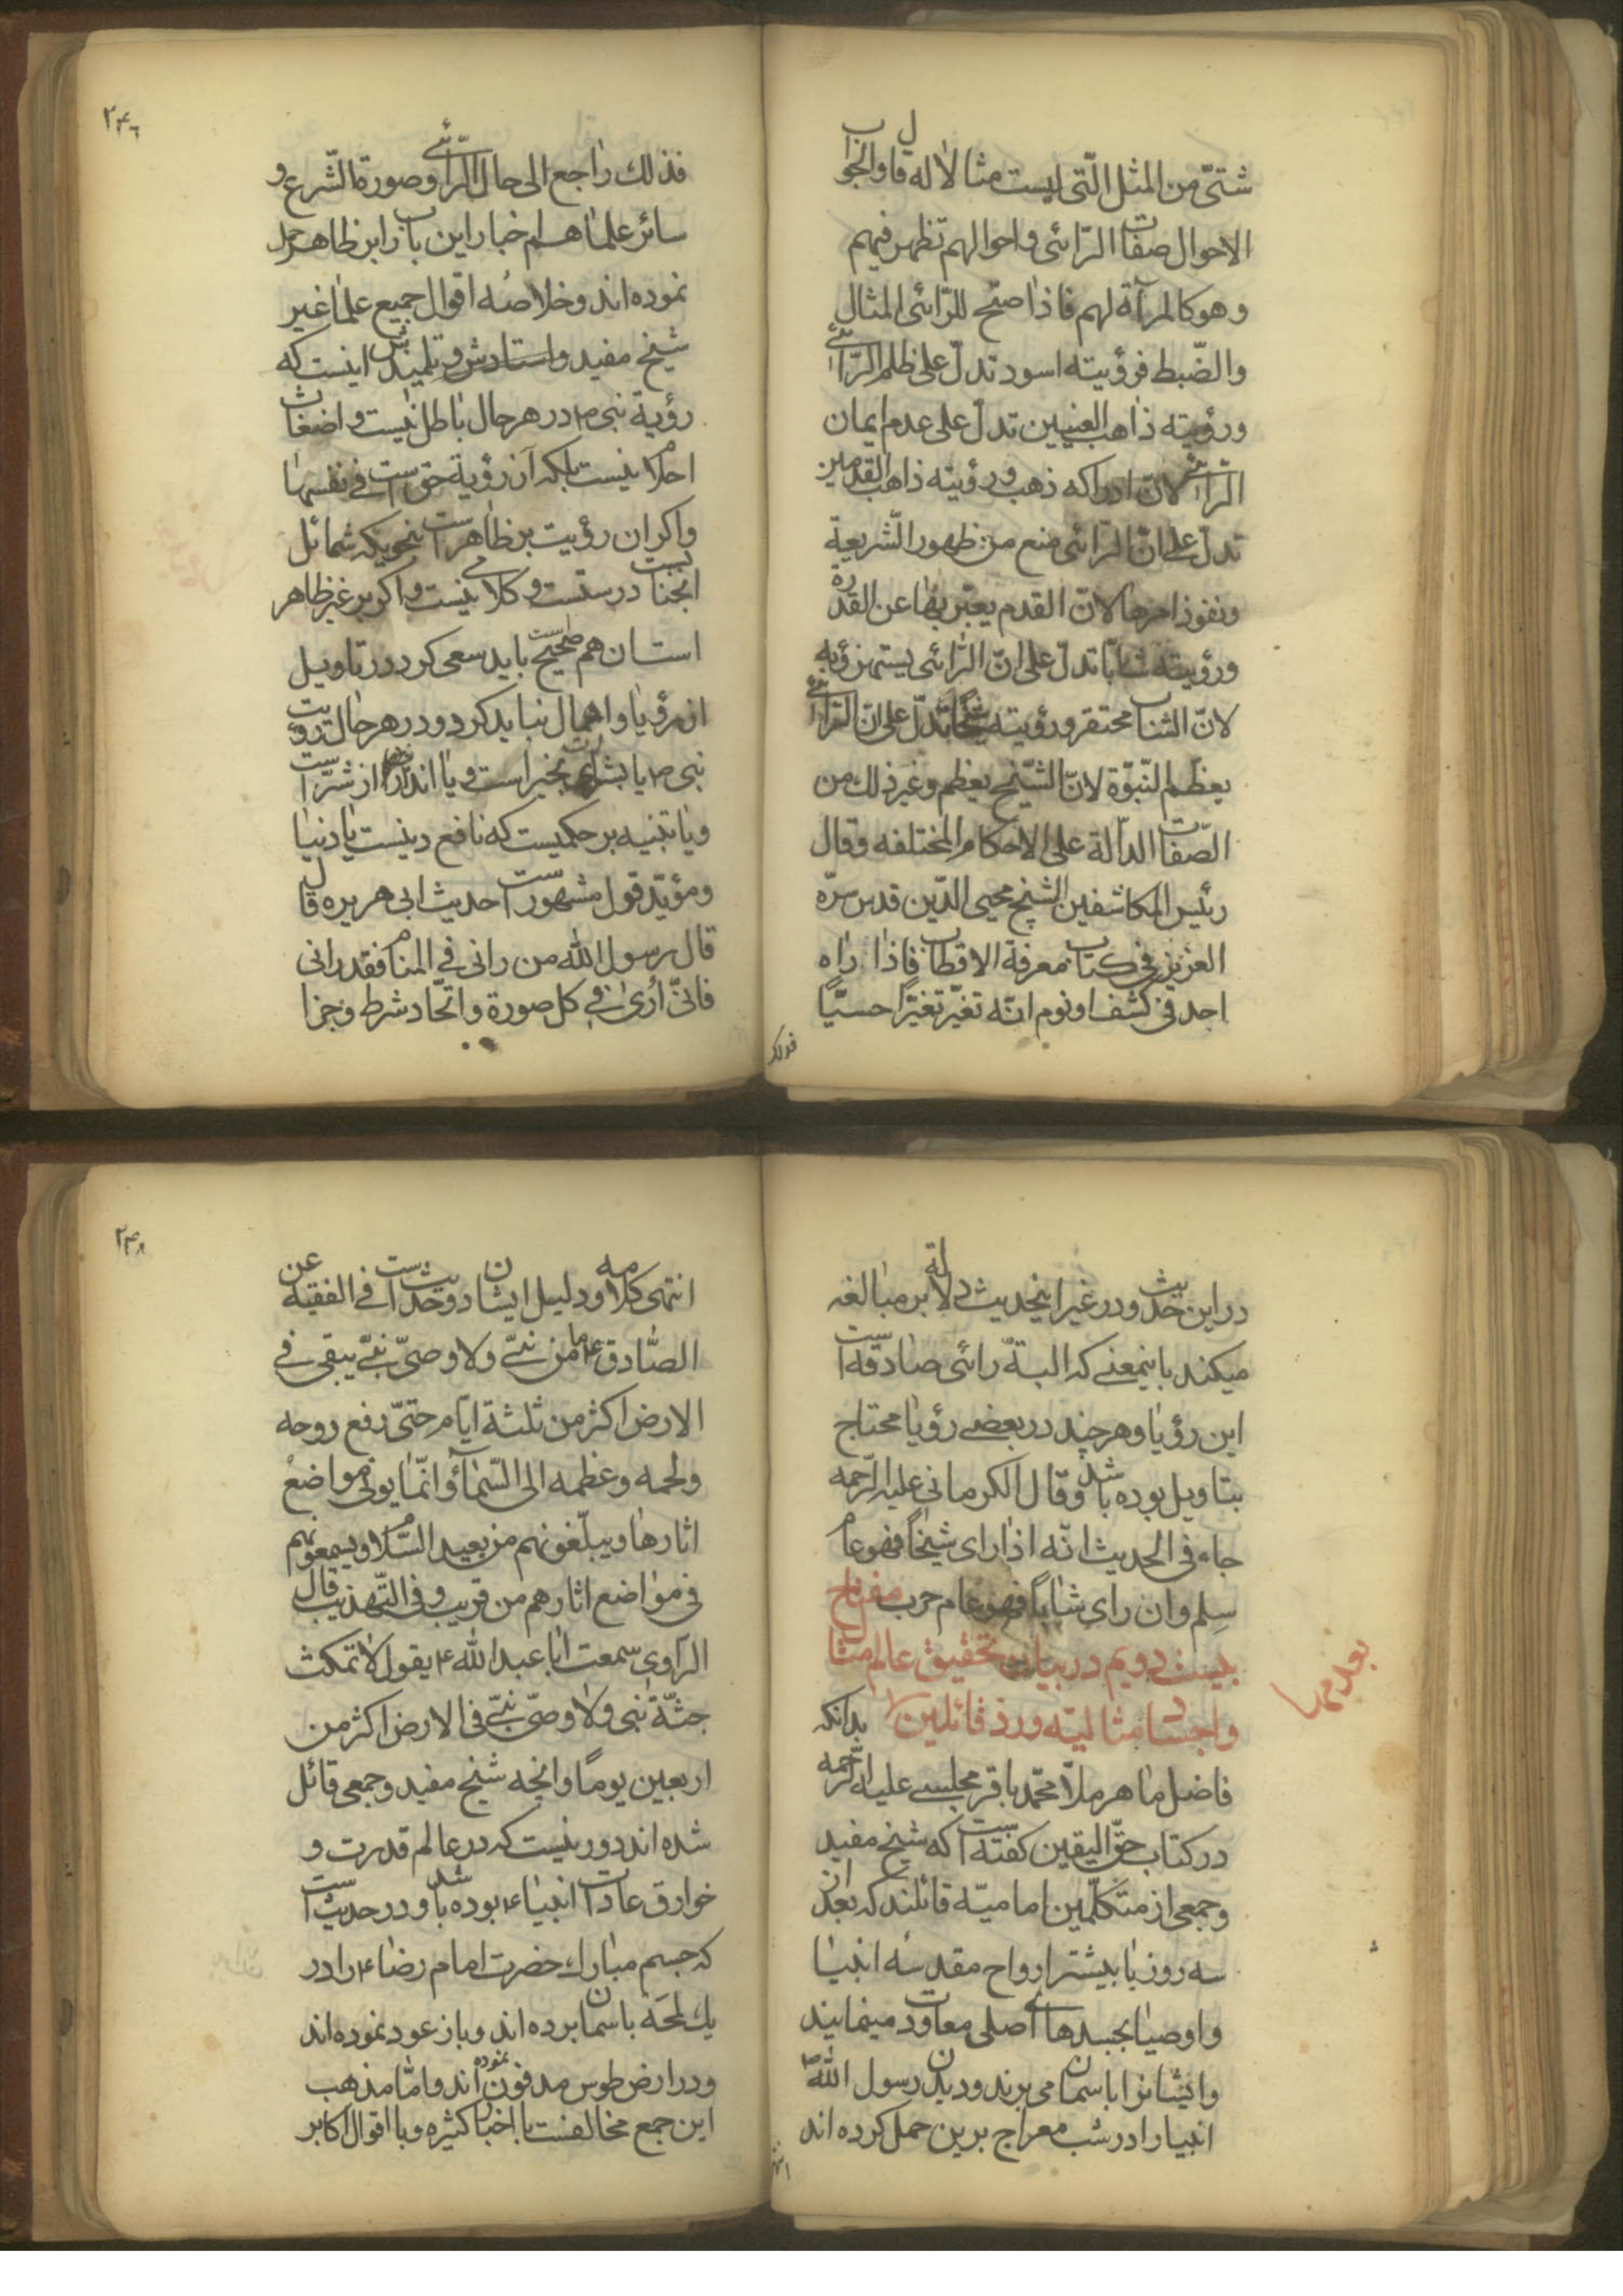 شتّی من المثل الّتی لیست مثالا له قال و الجواب
الاحوال صفات الرّائی و احوالهم تظهر فیهم
و هو کالمرآة لهم فاذا صحّ للرّائی المثال
و الضّبط فرؤیته اسود تدلّ علی ظلم الرّائی
و رؤیته ذاهب العینین تدلّ علی عدم ایمان
الرّائی لانّ ادراکه ذهب و رؤیته ذاهب القدمین
تدلّ علی انّ الرّائی منع من ظهور الشّریعة
و نفوذ امرها لانّ القدم یعبّر بها عن القدرة
و رؤیته شابّا تدلّ علی انّ الرّائی یستهزؤ به
لانّ الشاب محتقر و رؤیته شیخًا تدلّ علی انّ الرّائی
یعظّم النّبوّة لانّ الشّیخ یعظم و غیر ذلك من
الصّفات الدالّة علی الاحکام المختلفه و قال
رئیس المکاشفین الشیخ محیی الدّین قدس سرّه
العزیز فی کتاب معرفة الاقطاب فاذا راه
احد فی کشف او نوم انّه تغیّر تغیّرًا حسیّا
فذلك
۲۴۶
فذلك راجع الی حال الرّائی و صورة الشّرع و
سائر علماهم اخبار این باب را بر ظاهر حمل
نموده اند و خلاصهٔ اقوال جمیع علما غیر
شیخ مفید و استادش و تلمیذش اینست که
رؤیة نبی ص در هر حال باطل نیست و اضغاث
احلام نیست بلکه آن رؤیة حق است فی نفسها
و اکر ان رؤیت بر ظاهر است بنحویکه شمائل
انجناب درستست و کلامی نیست و اکر بر غیر ظاهر
است ان هم صحیح است باید سعی کرد در تاویل
ان رؤیا و اهمال نباید کرد و در هر حال رؤیت
نبی ص یا بشارت بخیر است و یا انذار از شرّ است
و یا تنبیه بر حکمیست که نافع دینست یا دنیا
و مؤیّد قول مشهور است حدیث ابی هریره قال
قال رسول الله من رانی فی المنام فقد رانی
فانّی اُریٰ فی کل صورة و اتّحاد شرط و جزا
در این حدیث و در غیر اینحدیث دلالة بر مبالغه
میکند باینمعنی که البتّه رائی صادقه است
این رؤیا و هر چند در بعضی رؤیا محتاج
بتاویل بوده باشد و قال الکرمانی علیه الرّحمه
جاء فی الحدیث انّه اذا رای شیخاً فهو عام
سِلم و ان رای شاباً فهو عام حرب مفتاح
بیست دویم در بیان تحقیق عالم مثال
و اجساد مثالیّه و ردّ قائلین را بدانکه
فاضل ماهر ملّا محمّد باقر مجلسی علیه الرّحمه
در کتاب حقّ الیقین کفته است که شیخ مفید
و جمعی از متکلّمین امامیّه قائلند که بعد از
سه روز یا بیشتر ارواح مقدسهٔ انبیا
و اوصیا بجسدهای اصلی معاودت مینمایند
و ایشانرا باسمان می برند و دیدن رسول الله ص
انبیا را در شب معراج برین حمل کرده اند
انتهی
۲۴۸
انتهی کلامه و دلیل ایشان دو حدیث است فی الفقیه عن
الصّادق ع ما من نبیّ و لا وصیّ نبیّ یبقی فی
الارض اکثر من ثلثة ایّام حتیّ رفع روحه
و لحمه و عظمه الی السّمآء و انّما یوتی مواضع
اثارها و یبلّغونهم من بعید السّلام و یسمعونهم
فی مواضع اثارهم من قریب و فی التّهذیب قال
الراوی سمعت ابا عبد الله ع یقول لا تمکث
جثّة نبی و لا وصیّ نبیّ فی الارض اکثر من
اربعین یومًا و انچه شیخ مفید و جمعی قائل
شده اند دور نیست که در عالم قدرت و
خوارق عادات انبیاء ع بوده باشد و در حدیث است
که جسم مبارك حضرت امام رضا ع را در
یك لمحَه باسمان برده اند و باز عود نموده اند
و در ارض طوس مدفون نموده اند و امّا مذهب
این جمع مخالفست با اخبار کثیره و با اقوال اکابر